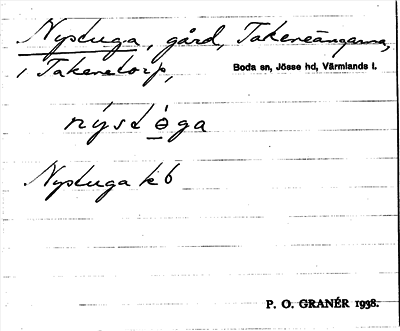 Nystuga, gård, Takeneängarna,
i Takenetorp,
Boda sn, Jösse hd, Värmlands l.
nýstɵ̠ga
Nystuga kb
P. O. GRANÉR 1938.